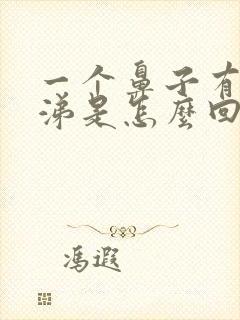 一个鼻子有
涕是怎麼回
馮遐